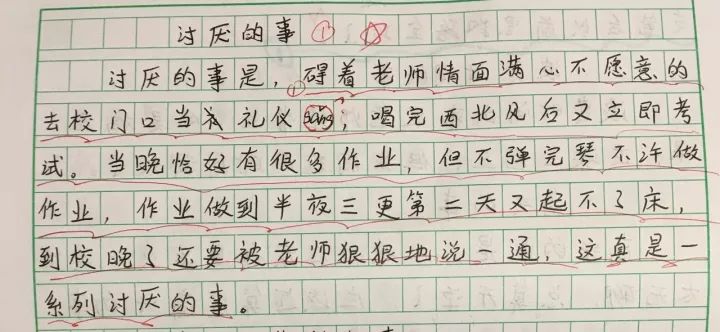 讨厌的事 ①
讨厌的事是,①碍着老师情面满心不愿意的
去校门口当礼仪gang,喝完西北风后又立即考
试。当晚恰好有很多作业,但不弹完琴不许做
作业,作业做到半夜三更第二天又起不了床,
到校晚了还要被老师狠狠地说一通,这真是一
系列讨厌的事。